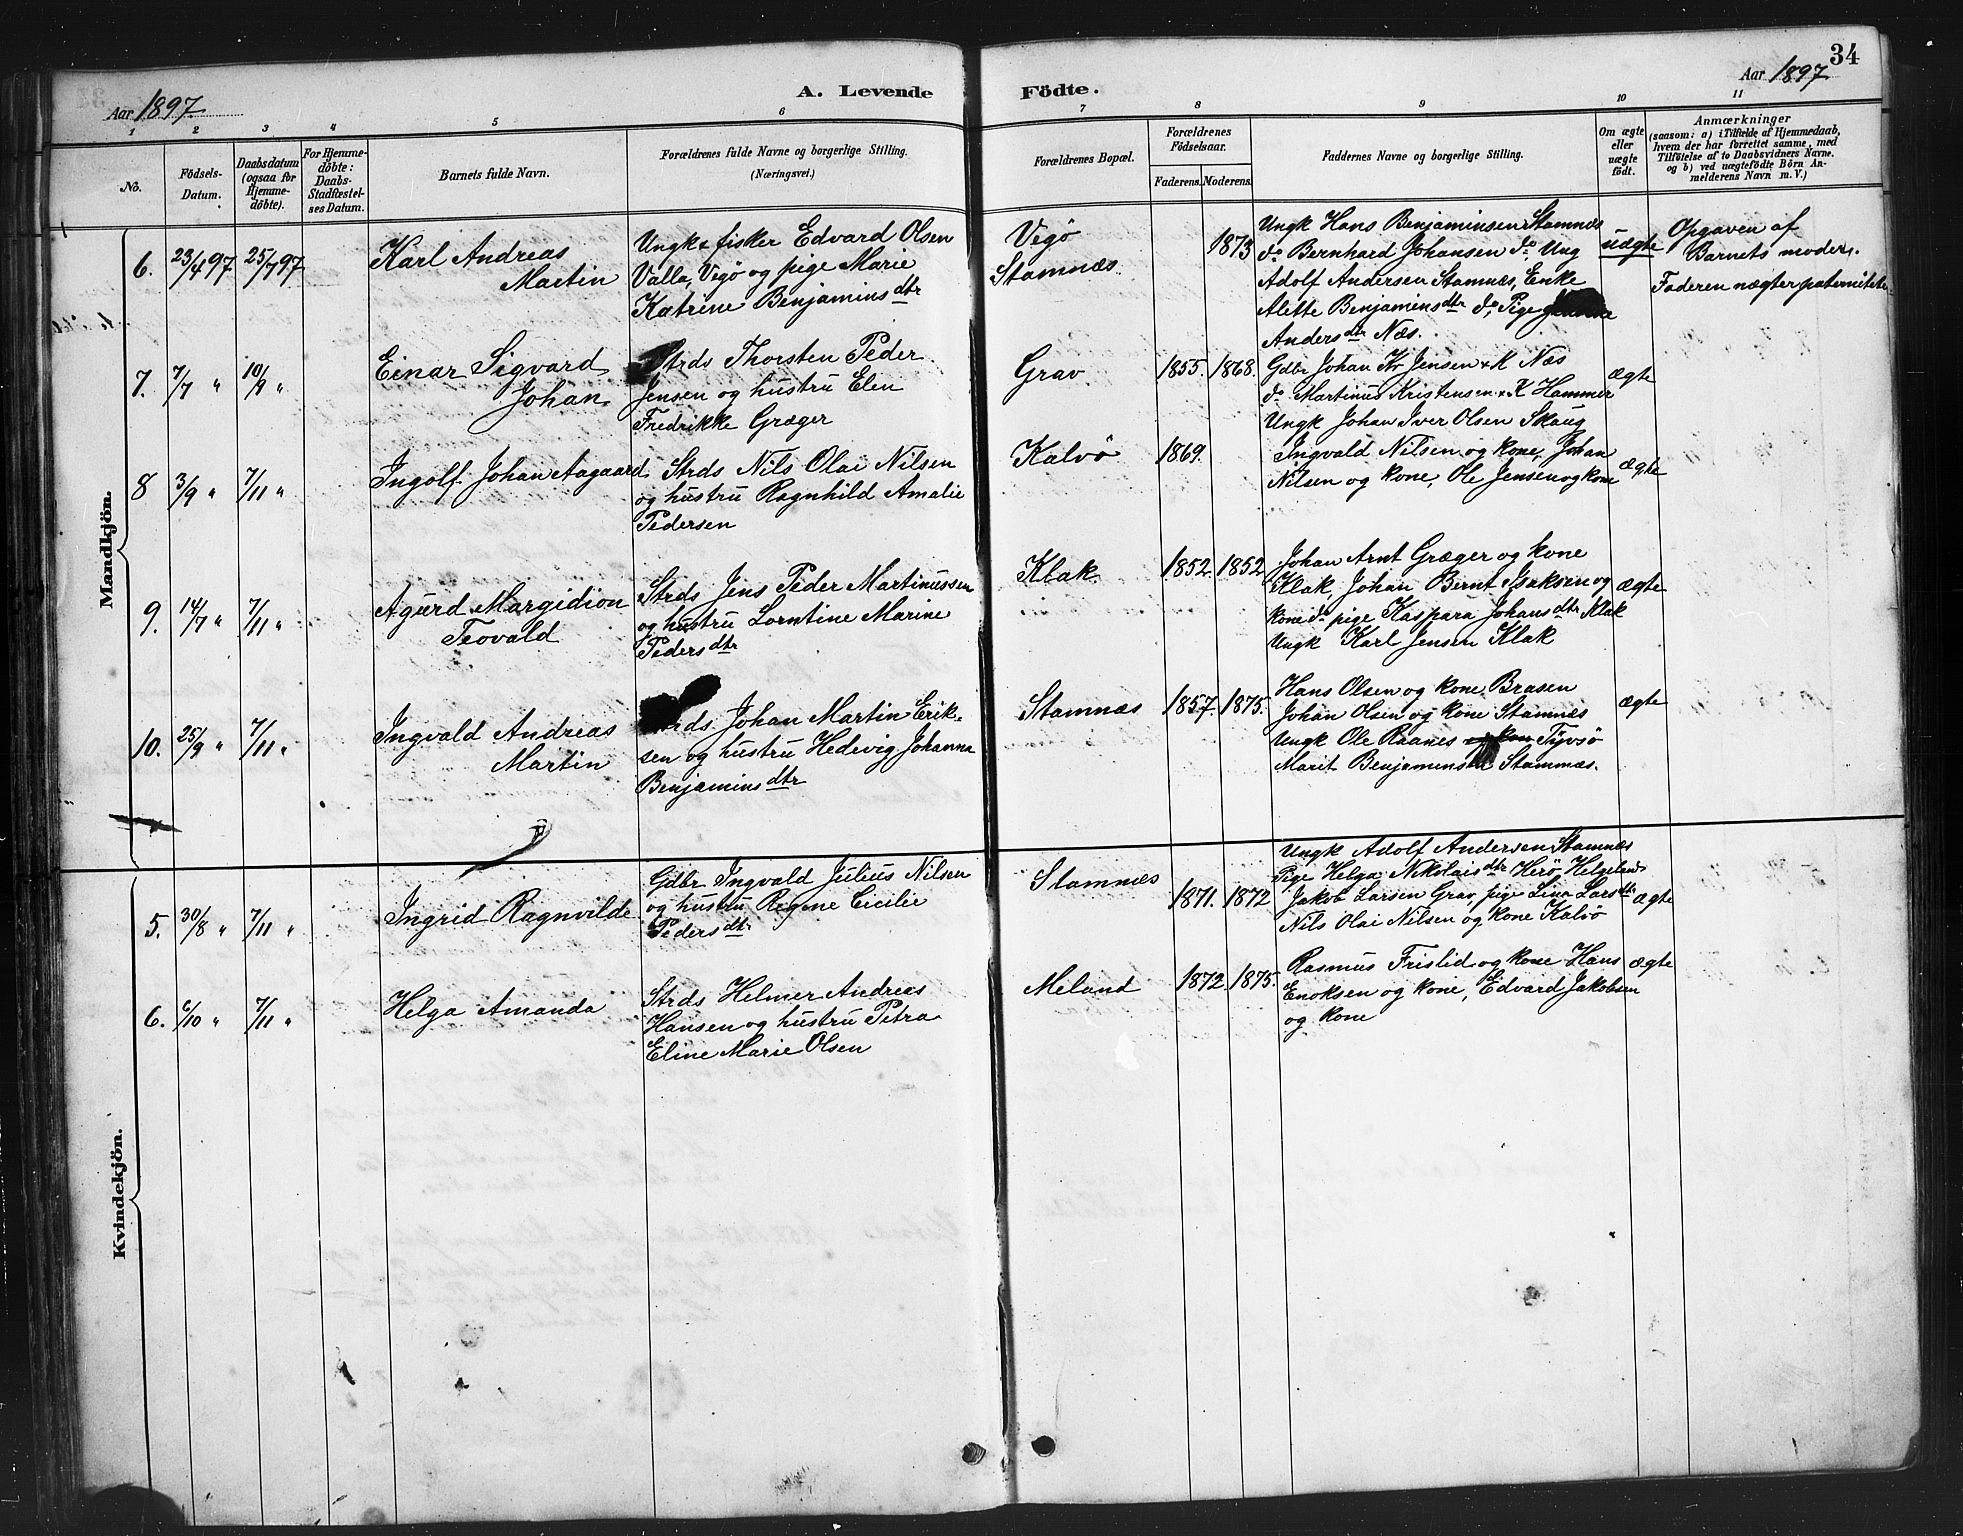 34
Aar 1897.
A. Levende
Födte.
Aar 1897
1 2 3 4 5 6 7 8 9 10 11
No.
Födsels-
Datum.
Daabsdatum
(ogsaa for
Hjemme-
döbte).
For Hjemme-
döbte:
Daabs-
Stadfæstel-
ses Datum.
Barnets fulde Navn.
Forældrenes fulde Navne og borgerlige Stilling.
(Næringsvei.)
Forældrenes Bopæl.
Forældrenes
Födselsaar.
Faderens. Moderens.
Faddernes Navne og borgerlige Stilling.
Om ægte
eller
uægte
födt.
Anmærkninger
(saasom: a) i Tilfælde af Hjemmedaab,
hvem der har forrettet samme, med
Tilföielse af to Daabsvidners Navne.
og b) ved uægtefödte Börn An-
melderens Navn m. V.)
Mandkjön.
6. 23/4 97. 25/7 97
Karl Andreas
Martin
Ungk & fisker Edvard Olsen
Valla, Vegö og pige Marie
Katrine Benjaminsdtr
Vegö
Stamnæs
1873
Ungk Hans Benjaminsen Stamnæs
do Bernhard Johansen do, Ung
Adolf Andersen Stamnæs, Enke
Alette Benjaminsdtr do, Pige
Andersdtr Næs.
uægte
Opgaven af
Barnets moder.
Faderen nægter paterniteten
7. 7/7 " 10/9 "
Einar Sigvard
Johan
Strds Thorsten Peder
Jensen og hustru Elen
Fredrikke Græger
Grav
1855. 1868.
Gdbr Johan Kr Jensen & K Næs
do Martinus Kristensen & K Hammer
Ungk Johan Iver Olsen Skaug
ægte
8 3/9 " 7/11 "
Ingolf Johan Aagaard
Strds Nils Olai Nilsen
og hustru Ragnhild Amalie
Pedersen
Kalvö
1869.
Ingvald Nilsen og kone, Johan
Nilsen og kone, Ole Jensen og kone
ægte
9. 14/7 " 7/11 "
Agurd Margidion
Teovald
Strds Jens Peder Martinussen
og hustru Lorntine Marine
Pedersdtr
Klak
1852 1852
Johan Arnt Græger og kone
Klak, Johan Bernt Isaksen og
kone do pige Kaspara Johansdtr Klak
Ungk Karl Jensen Klak
ægte
10. 25/9 " 7/11 "
Ingvald Andreas
Martin
Strds Johan Martin Erik-
sen og hustru Hedevig Johanna
Benjaminsdtr
Stamnæs
1857. 1875.
Hans Olsen og kone Brasen
Johan Olsen og kone Stamnæs
Ungk Ole Raanes og kone Tyvsö
Marit Benjaminsen Stamnæs.
ægte
Kvindekjön.
5. 30/8 " 7/11 "
Ingrid Ragnvilde
Gdbr Ingvald Julius Nilsen
og hustru Regine Cicilie
Pedersdtr
Stamnæs
1871. 1872
Ungk Adolf Andersen Stamnæs
Pige Helga Nikolaisdtr Herö, Helgeland
Jakob Larsen Grav, pige Lina Larsdtr
Nils Olai Nilsen og kone Kalvö
ægte
6. 6/10 " 7/11 "
Helga Amanda
Strds Helmer Andreas
Hansen og hustru Petra
Eline Marie Olsen
Meland
1872 1875.
Rasmus Frislid og kone Hans
Enoksen og kone, Edvard Jakobsen
og kone
ægte